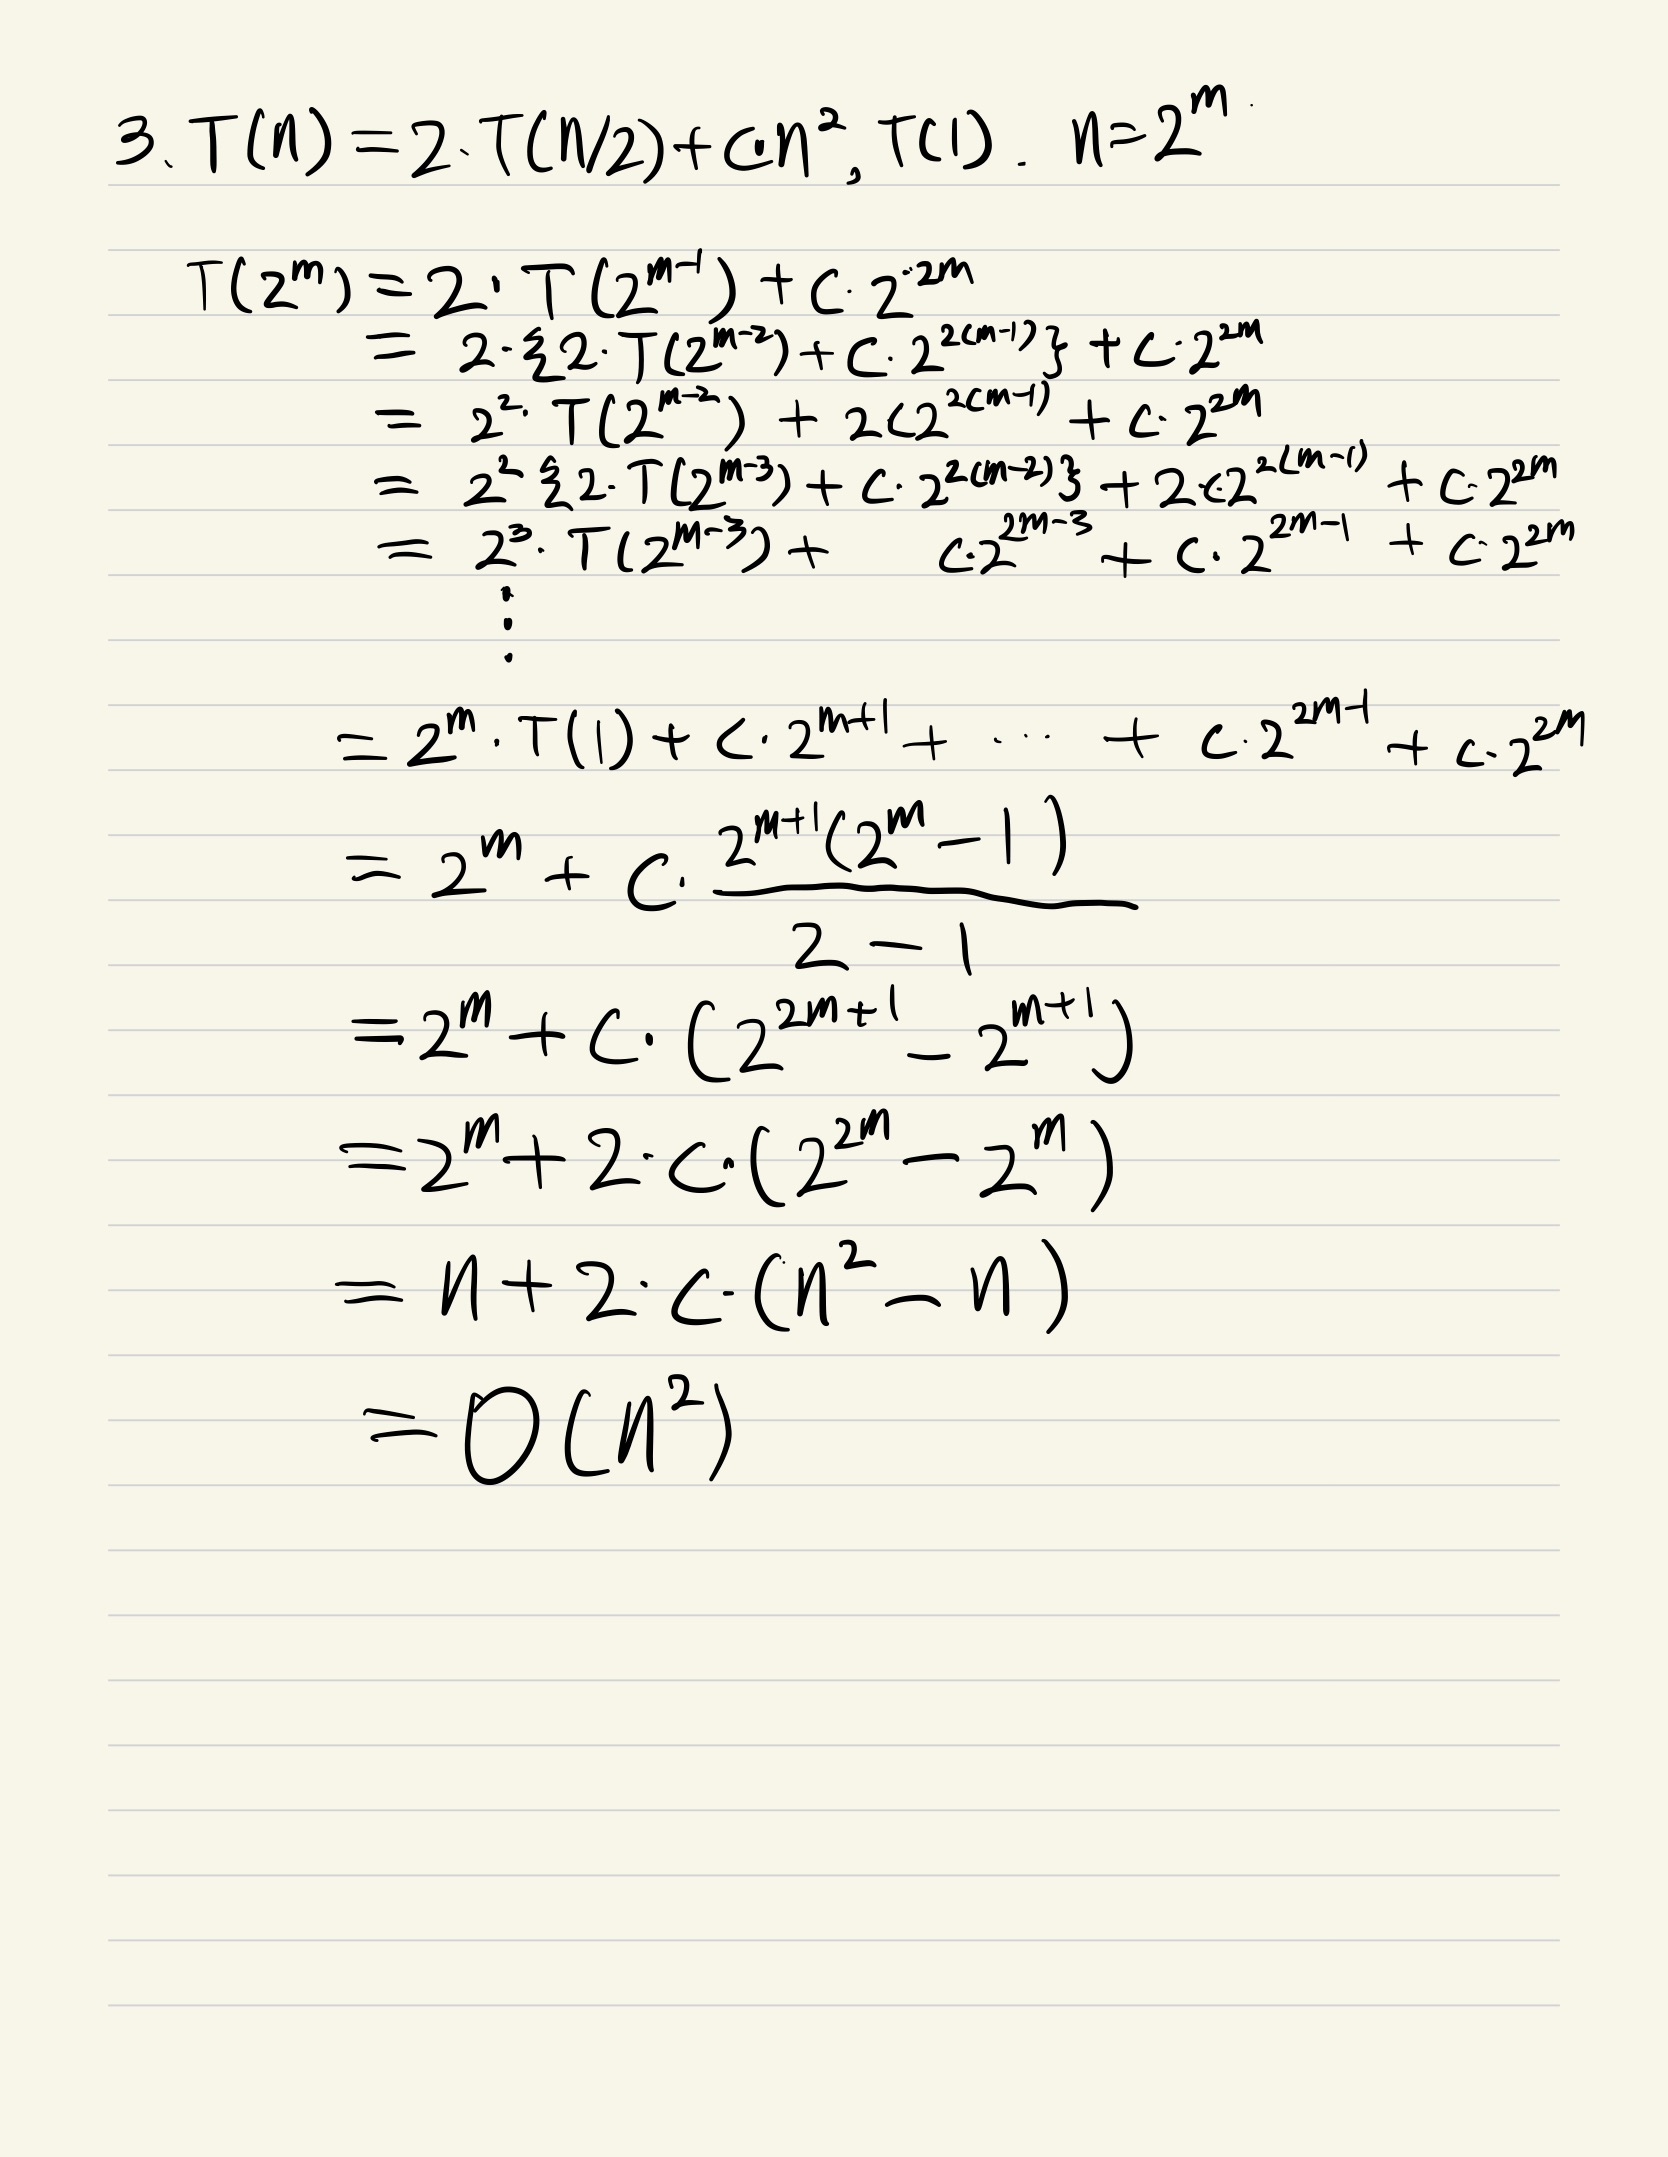 3. T(n) = 2·T(n/2) + c·n², T(1). n = 2^m
T(2^m) = 2·T(2^(m-1)) + c·2^(2m)
= 2·{2·T(2^(m-2)) + c·2^(2(m-1))} + c·2^(2m)
= 2²·T(2^(m-2)) + 2c2^(2(m-1)) + c·2^(2m)
= 2²{2·T(2^(m-3)) + c·2^(2(m-2))} + 2·c2^(2(m-1)) + c·2^(2m)
= 2³·T(2^(m-3)) + c·2^(2m-3) + c·2^(2m-1) + c·2^(2m)
⋮
= 2^m·T(1) + c·2^(m+1) + ··· + c·2^(2m-1) + c·2^(2m)
= 2^m + c·(2^(m+1)(2^m - 1))/(2 - 1)
= 2^m + c·(2^(2m+1) - 2^(m+1))
= 2^m + 2·c·(2^(2m) - 2^m)
= n + 2·c·(n² - n)
= O(n²)